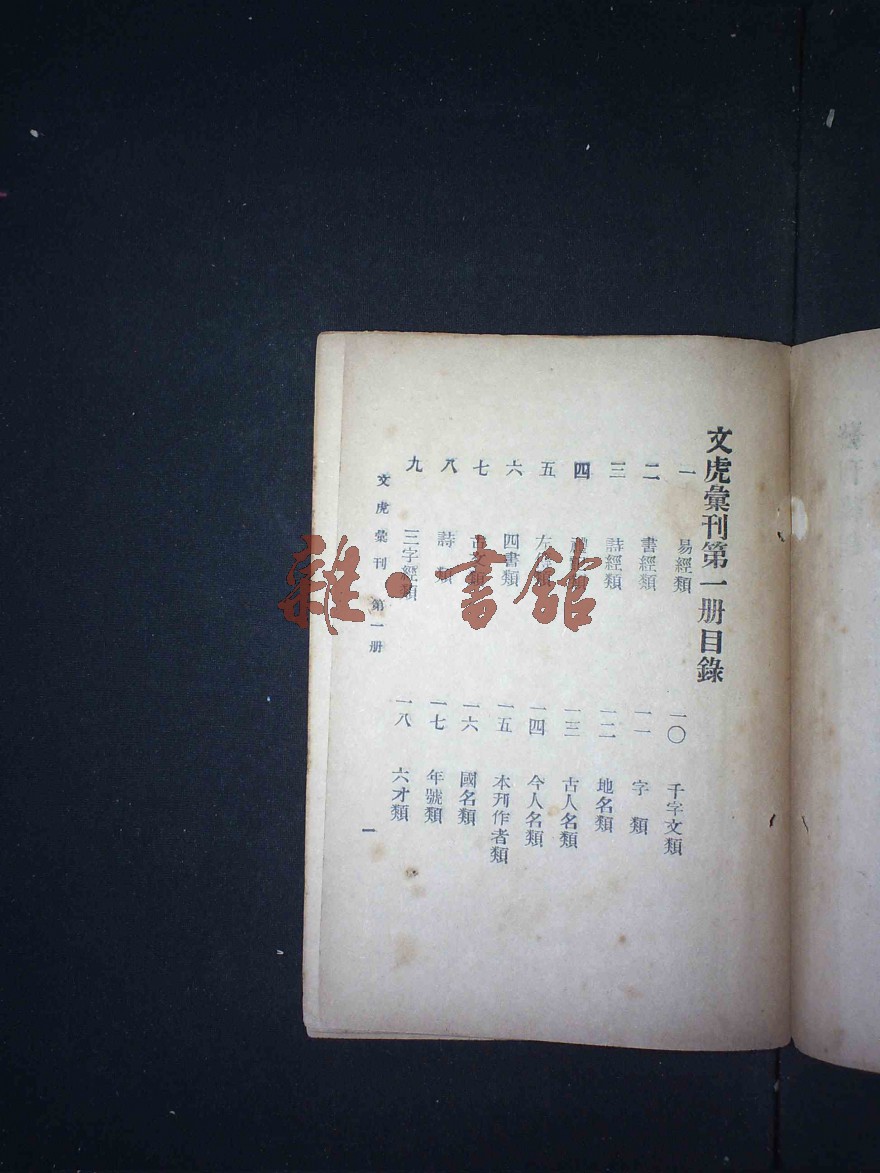 文虎彙刊第一册目錄
一 易經類
二 書經類
三 詩經類
四 類
五 左 類
六 四書類
七 古文類
八 詩 類
九 三字經類
一〇 千字文類
一一 字 類
一二 地名類
一三 古人名類
一四 今人名類
一五 本刋作者類
一六 國名類
一七 年號類
一八 六才類
文虎彙刊 第一册
一
雜·書館